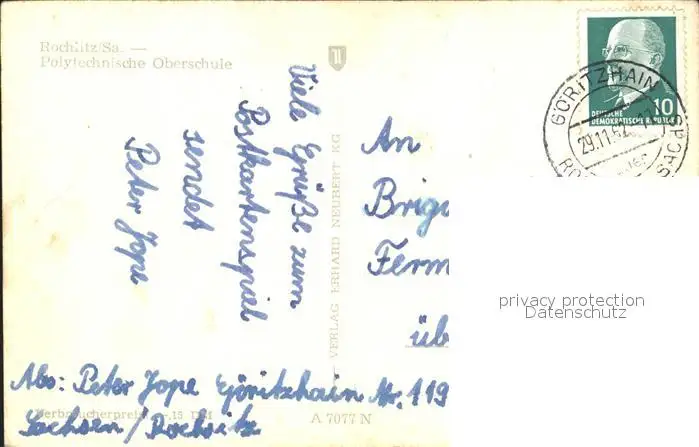 Rochlitz/Sa. —
Polytechnische Oberschule
Viele Grüße zum
Postkartenspiel
sendet
Peter Jope
VERLAG ERHARD NEUBERT KG
DEUTSCHE
DEMOKRATISCHE REPUBLIK
10
GÖRITZHAIN
29.11.62
An
Brig
Ferm
üb
privacy protection
Datenschutz
Abs: Peter Jope Göritzhain Nr. 119
Verbraucherpreis -,15 DM
A 7077 N
Sachsen / Rochlitz